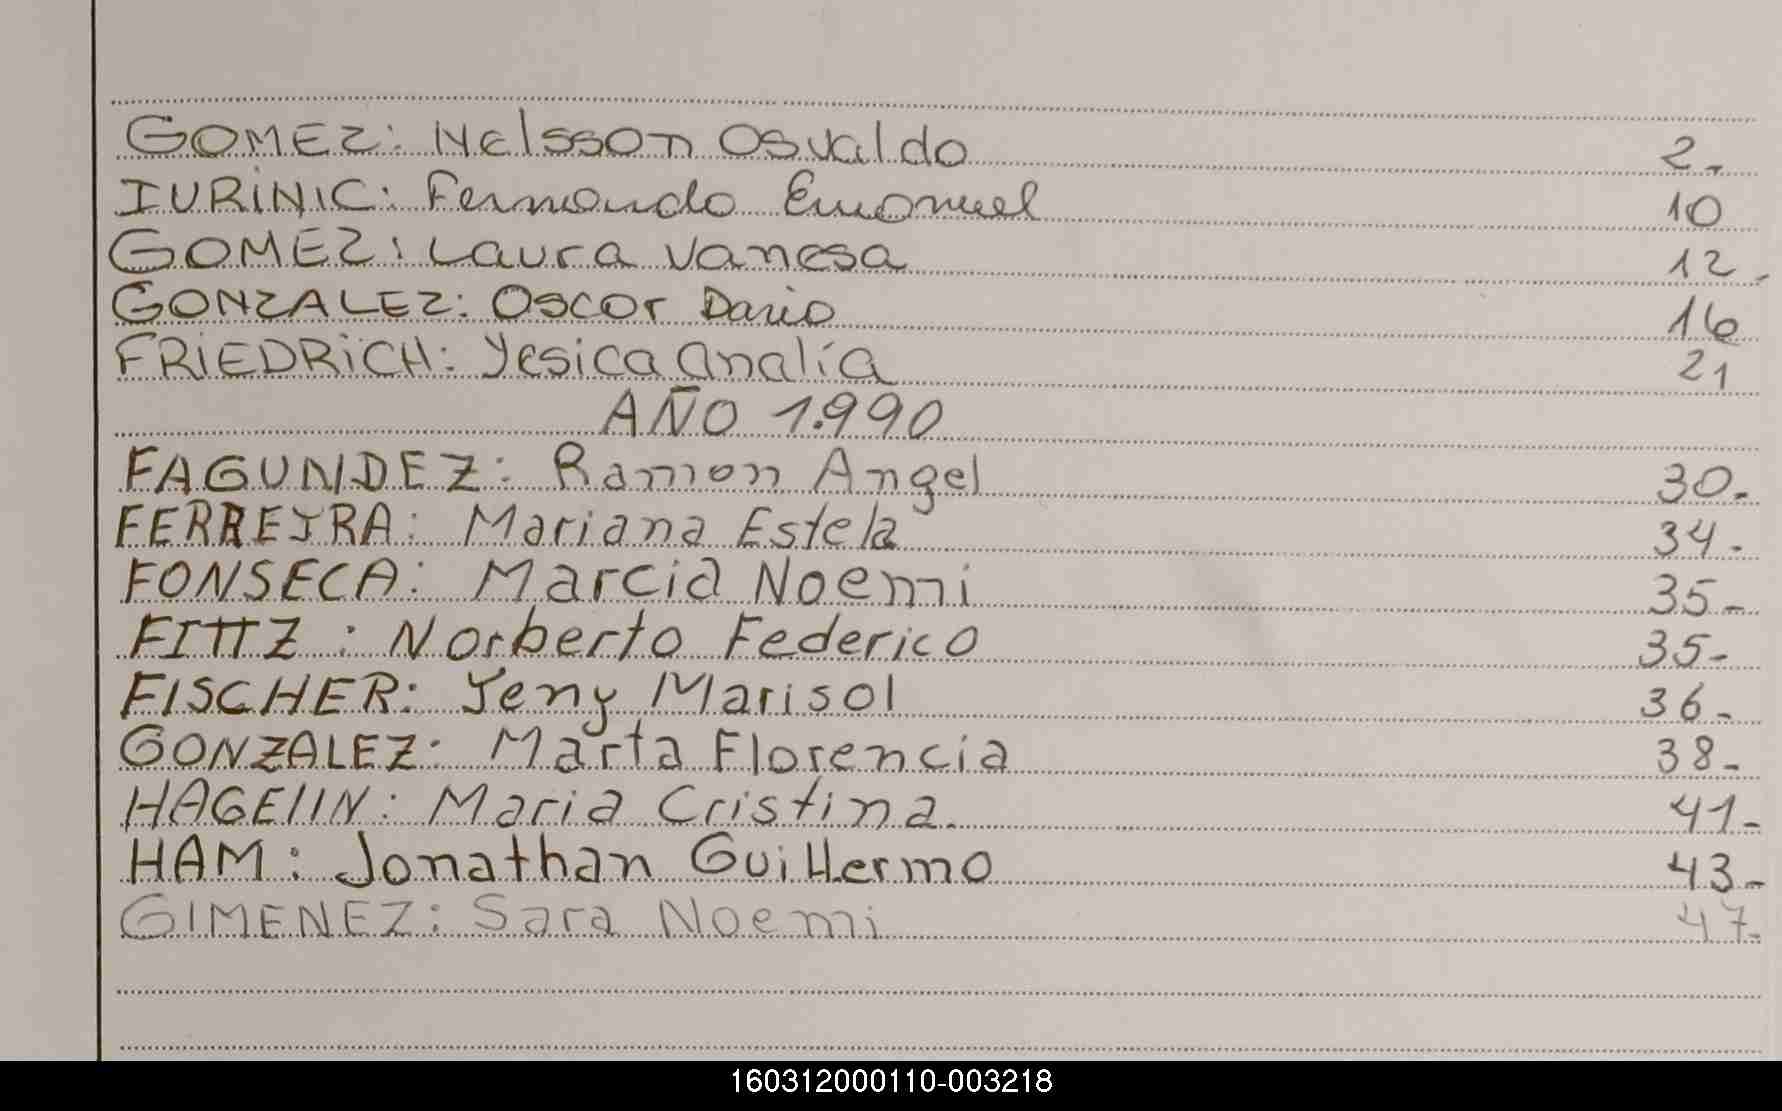 GOMEZ: Nelsson Osvaldo 2.
IURINIC: Fernando Emanuel 10
GOMEZ: Laura Vanesa 12.
GONZALEZ: Oscar Dario 16
FRIEDRICH: Yesica Analía 21
AÑO 1.990
FAGUNDEZ: Ramon Angel 30.
FERREJRA: Mariana Estela 34.
FONSECA: Marcia Noemi 35-
FITTZ: Norberto Federico 35-
FISCHER: Yeny Marisol 36-
GONZALEZ: Marta Florencia 38-
HAGELIN: Maria Cristina. 41-
HAM: Jonathan Guillermo 43-
GIMENEZ: Sara Noemi 47-
160312000110-003218